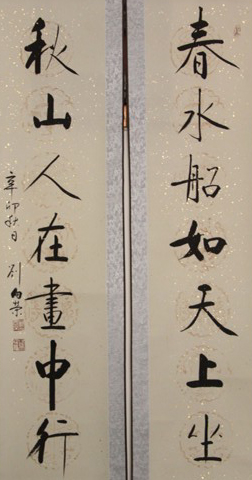 春水船如天上坐
秋山人在畫中行
辛卯秋日 劉向榮